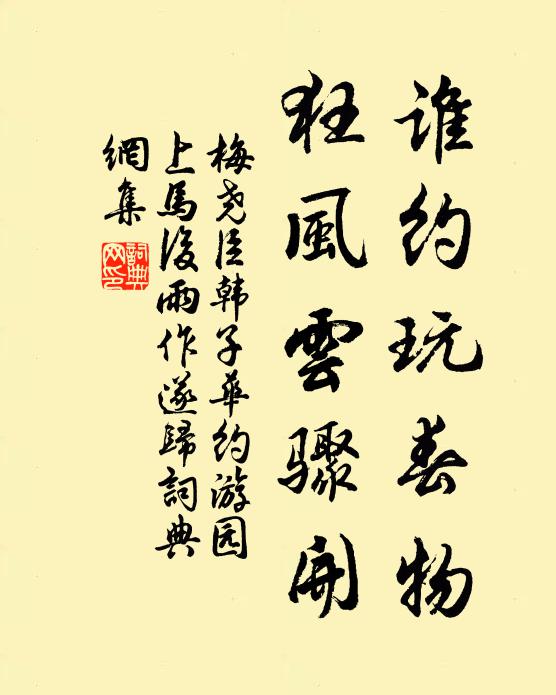 谁约玩春物
狂風雲驟開
梅尧臣韩子華约游园
上馬後雨作遂歸詞典
網集
詞典網印